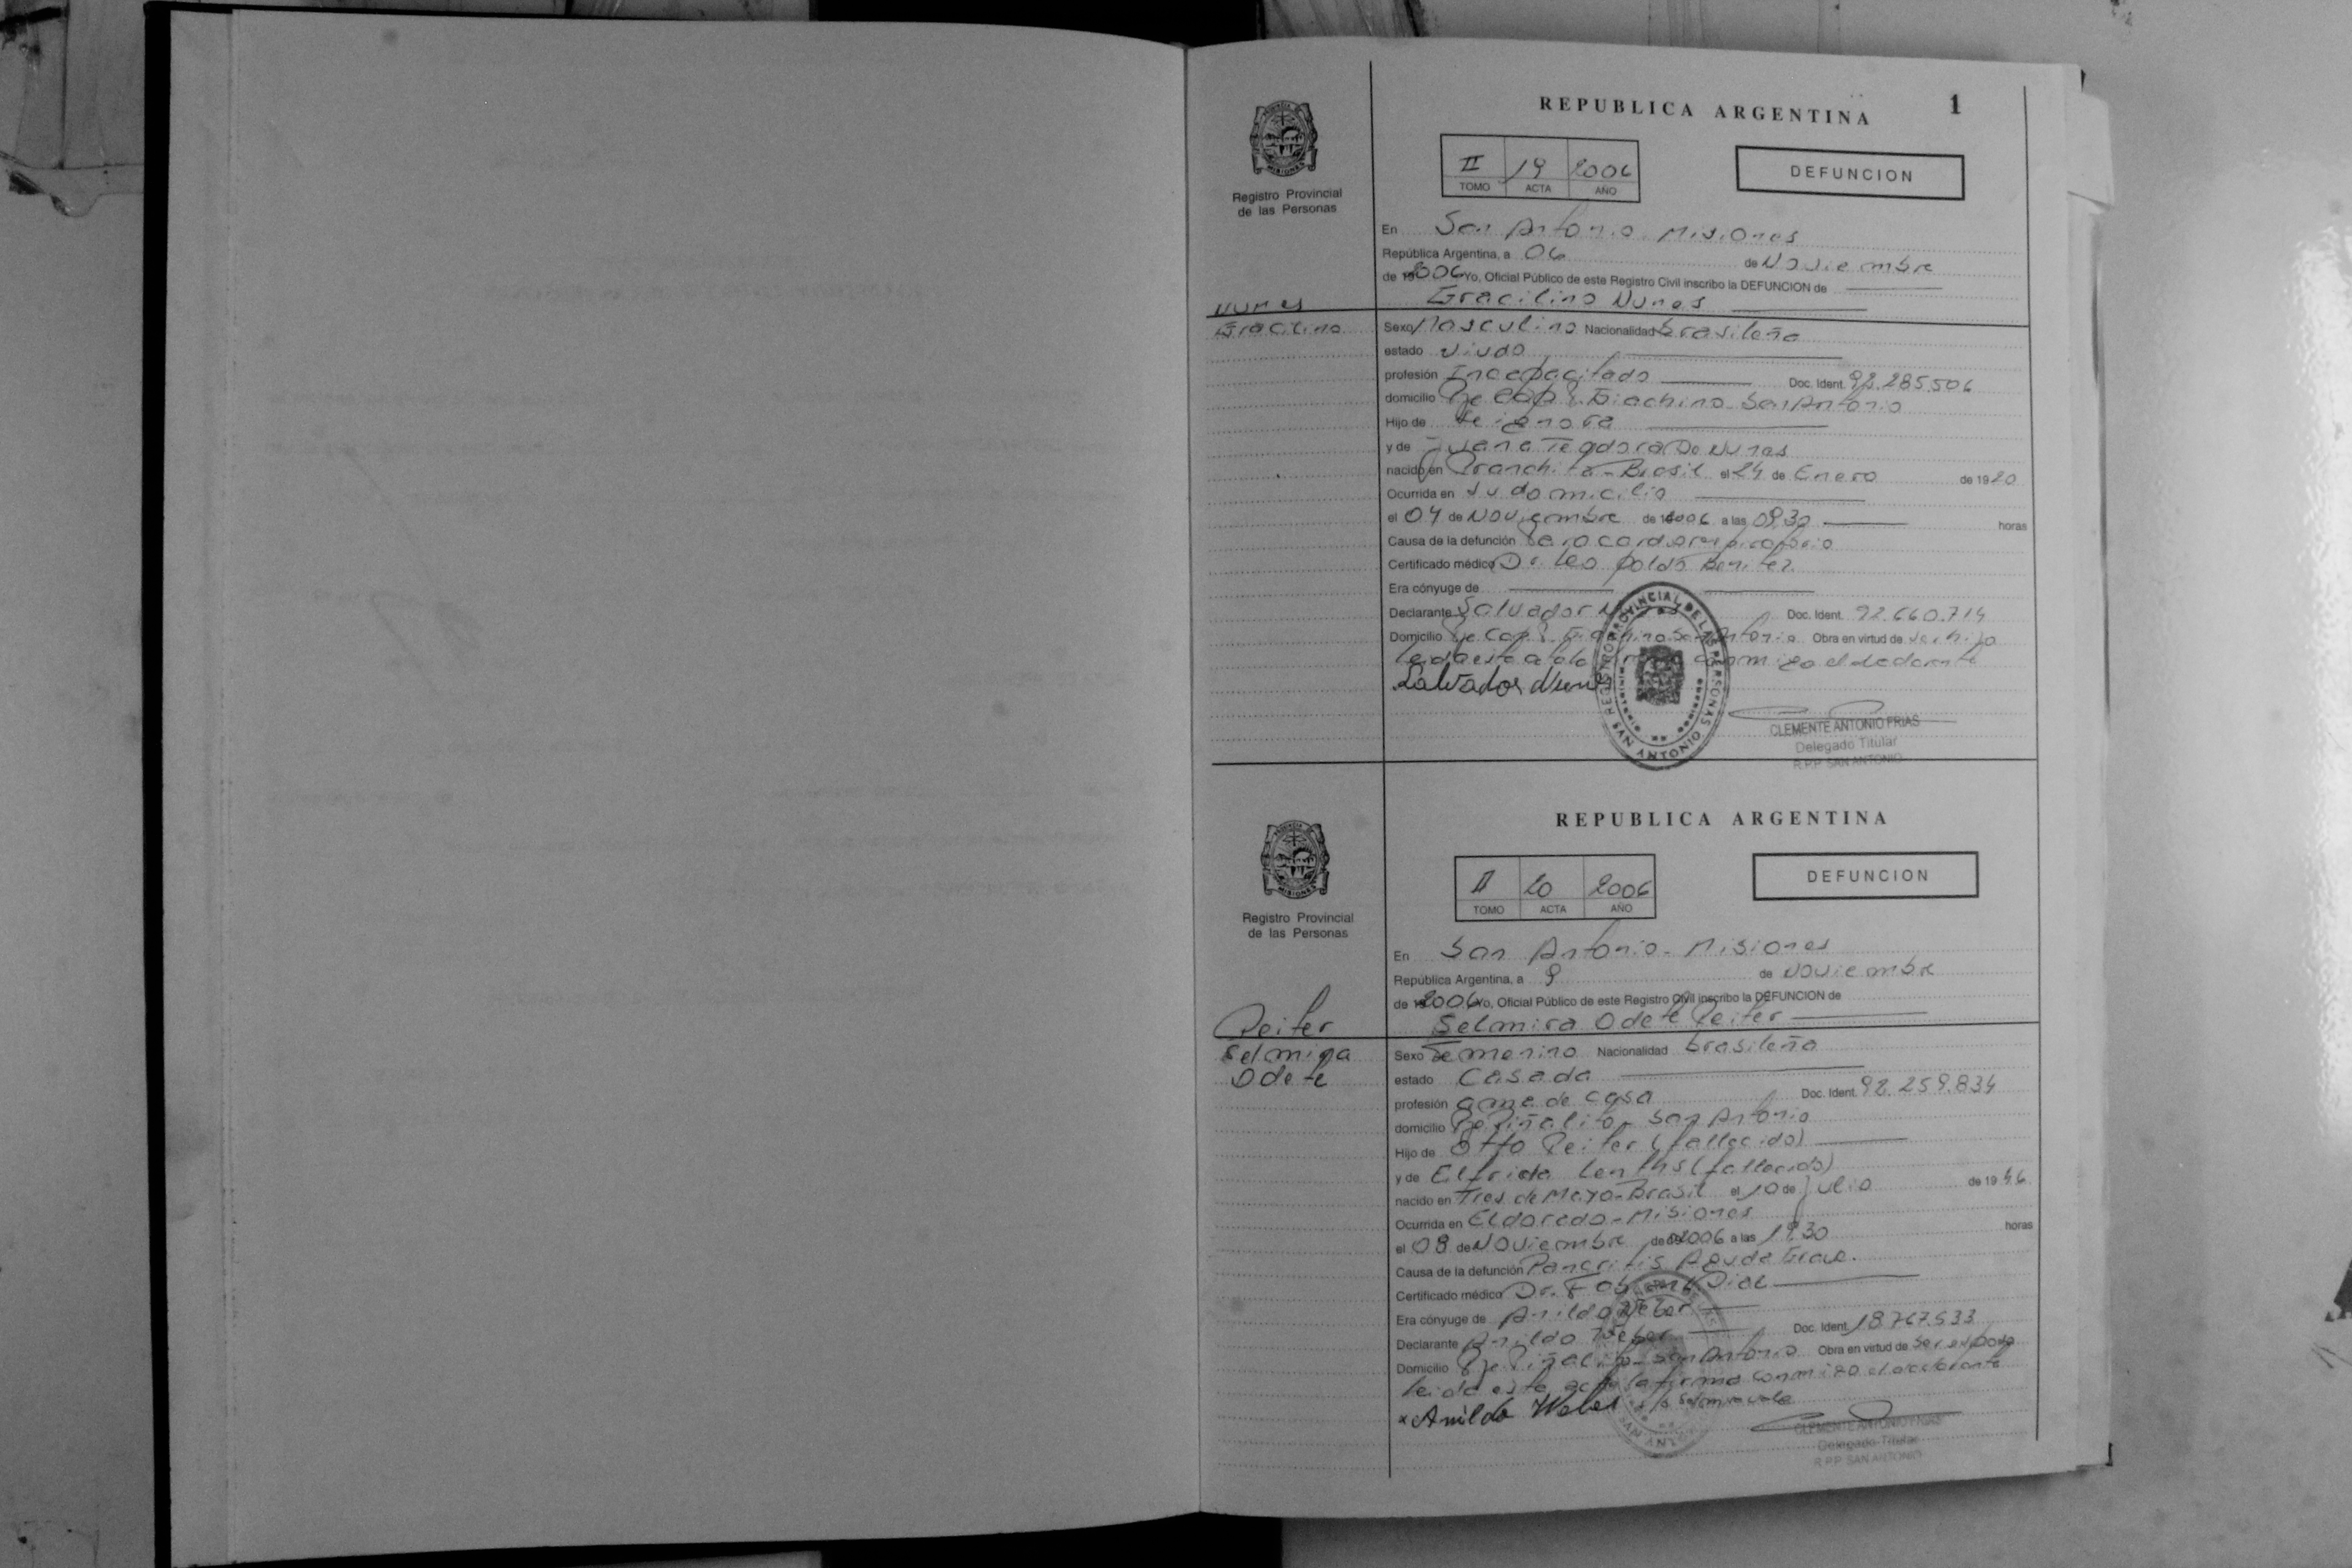 1
REPUBLICA ARGENTINA
Registro Provincial
de las Personas
II 19 2006
TOMO ACTA AÑO
DEFUNCION
En San Antonio. Misiones
República Argentina, a 06 de Noviembre
de 2006 Yo, Oficial Público de este Registro Civil inscribo la DEFUNCION de
Gracilino Nunes
Nunes
Gracilino
Sexo Masculino Nacionalidad brasileña
estado viudo
profesión Incapacitado Doc. Ident. 92.285.506
domicilio Giachino San Antonio
Hijo de se ignora
y de Juana Teodora De Nunes
nacido en Brasil el 24 de Enero de 1920
Ocurrida en su domicilio
el 04 de Noviembre de 2006 a las 09.30 horas
Causa de la defunción Paro cardiorespiratorio
Certificado médico Dr. Leopoldo Benitez
Era cónyuge de
Declarante Salvador Doc. Ident. 92.660.714
Domicilio Pje Cap. Giachino San Antonio Obra en virtud de ser hijo
leida esta acta conmigo el declarante
Salvador Nunes
REGISTRO PROVINCIAL DE LAS PERSONAS
SAN ANTONIO
CLEMENTE ANTONIO FRIAS
Delegado Titular
R.P.P. SAN ANTONIO
REPUBLICA ARGENTINA
Registro Provincial
de las Personas
II 20 2006
TOMO ACTA AÑO
DEFUNCION
En San Antonio - Misiones
República Argentina, a 9 de Noviembre
de 2006 Yo, Oficial Público de este Registro Civil inscribo la DEFUNCION de
Selmira Odete Reiter
Reiter
Selmira
Odete
Sexo Femenino Nacionalidad brasileña
estado Casada
profesión ama de casa Doc. Ident. 92.259.834
domicilio Piñalito - San Antonio
Hijo de Otto Reiter (fallecido)
y de Elfrida (fallecida)
nacido en Tres de Mayo - Brasil el 10 de julio de 1946
Ocurrida en Eldorado - Misiones
el 08 de Noviembre de 2006 a las 19.30 horas
Causa de la defunción Pancritis Aguda Grave.
Certificado médico Dr.
Era cónyuge de Anildo Weber
Declarante Anildo Weber Doc. Ident. 18.767.533
Domicilio Pje Piñalito - San Antonio Obra en virtud de ser esposo
leida esta acta la firma conmigo el declarante
x Anildo Weber s/b Selmira vale
SAN ANTONIO
CLEMENTE ANTONIO FRIAS
Delegado Titular
R.P.P. SAN ANTONIO